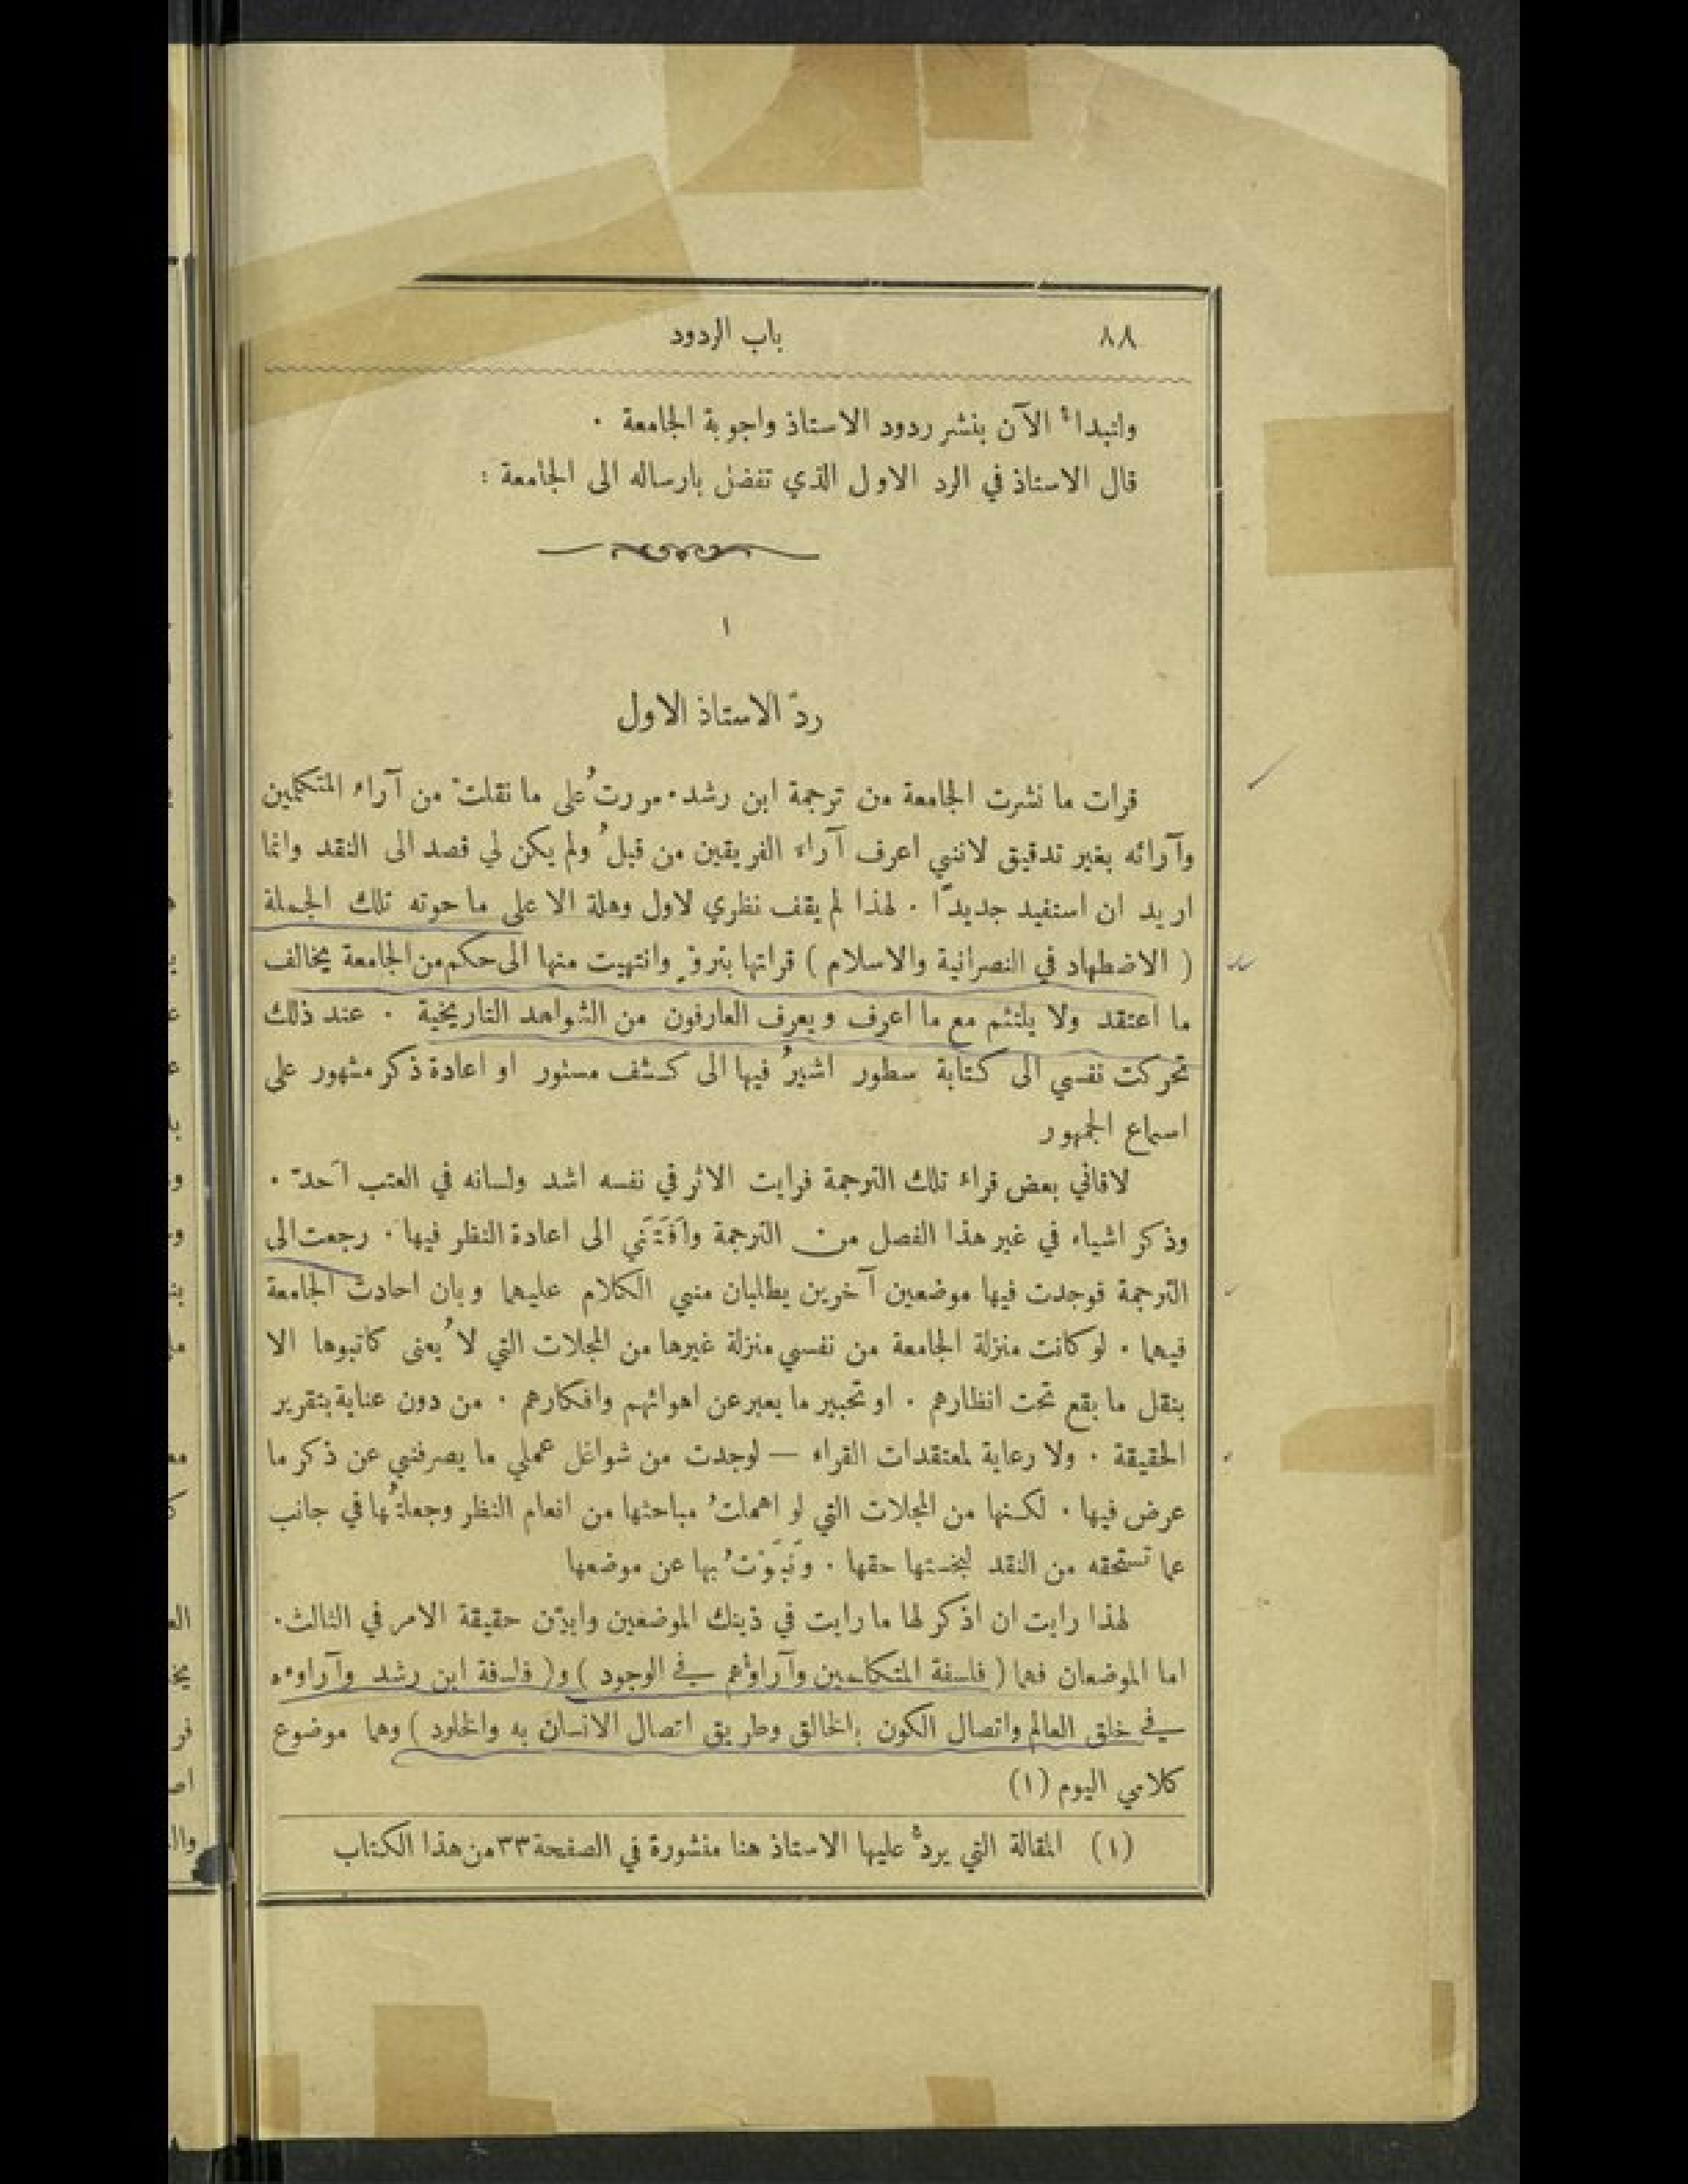 ٨٨
باب الردود
ولنبدأ الآن بنشر ردود الاستاذ واجوبة الجامعة ٠
قال الاستاذ في الرد الاول الذي تفضل بارساله الى الجامعة :
١
ردّ الاستاذ الاول
قرات ما نشرت الجامعة من ترجمة ابن رشد ٠ مررتُ على ما نقلتْ من آراء المتكلمين
وآرائه بغير تدقيق لانني اعرف آراء الفريقين من قبلُ ولم يكن لي قصد الى النقد وانما
اريد ان استفيد جديدًا ٠ لهذا لم يقف نظري لاول وهلة الا على ما حوته تلك الجملة
( الاضطهاد في النصرانية والاسلام ) قراتها بتروٍ وانتهيت منها الى حكم من الجامعة يخالف
ما اعتقد ولا يلتئم مع ما اعرف ويعرف العارفون من الشواهد التاريخية ٠ عند ذلك
تحركت نفسي الى كتابة سطور اشيرُ فيها الى كشف مستور او اعادة ذكر مشهور على
اسماع الجمهور
لاقاني بعض قراء تلك الترجمة فرايت الاثر في نفسه اشد ولسانه في العتب اَحدّ ٠
وذكر اشياء في غير هذا الفصل من الترجمة الى اعادة النظر فيها ٠ رجعت الى
الترجمة فوجدت فيها موضعين آخرين يطلبان مني الكلام عليهما وبان احادث الجامعة
فيهما ٠ لو كانت منزلة الجامعة من نفسي منزلة غيرها من المجلات التي لا يُعنى كاتبوها الا
بنقل ما يقع تحت انظارهم ٠ او تحبير ما يعبر عن اهوائهم وافكارهم ٠ من دون عناية بتقرير
الحقيقة ٠ ولا رعاية لمعتقدات القراء — لوجدت من شواغل عملي ما يصرفني عن ذكر ما
عرض فيها ٠ لكنها من المجلات التي لو اهملتُ مباحثها من انعام النظر وجعلتُها في جانب
عما تستحقه من النقد لبخستها حقها ٠ ونَبَوْتُ بها عن موضعها
لهذا رايت ان اذكر لها ما رايت في ذينك الموضعين وابيّن حقيقة الامر في الثالث ٠
اما الموضعان فهما ( فلسفة المتكلمين وآراؤهم في الوجود ) و( فلسفة ابن رشد وآراوءه
في خلق العالم واتصال الكون بالخالق وطريق اتصال الانسان به والخلود ) وهما موضوع
كلامي اليوم (١)
(١) المقالة التي يردّ عليها الاستاذ هنا منشورة في الصفحة ٣٣ من هذا الكتاب